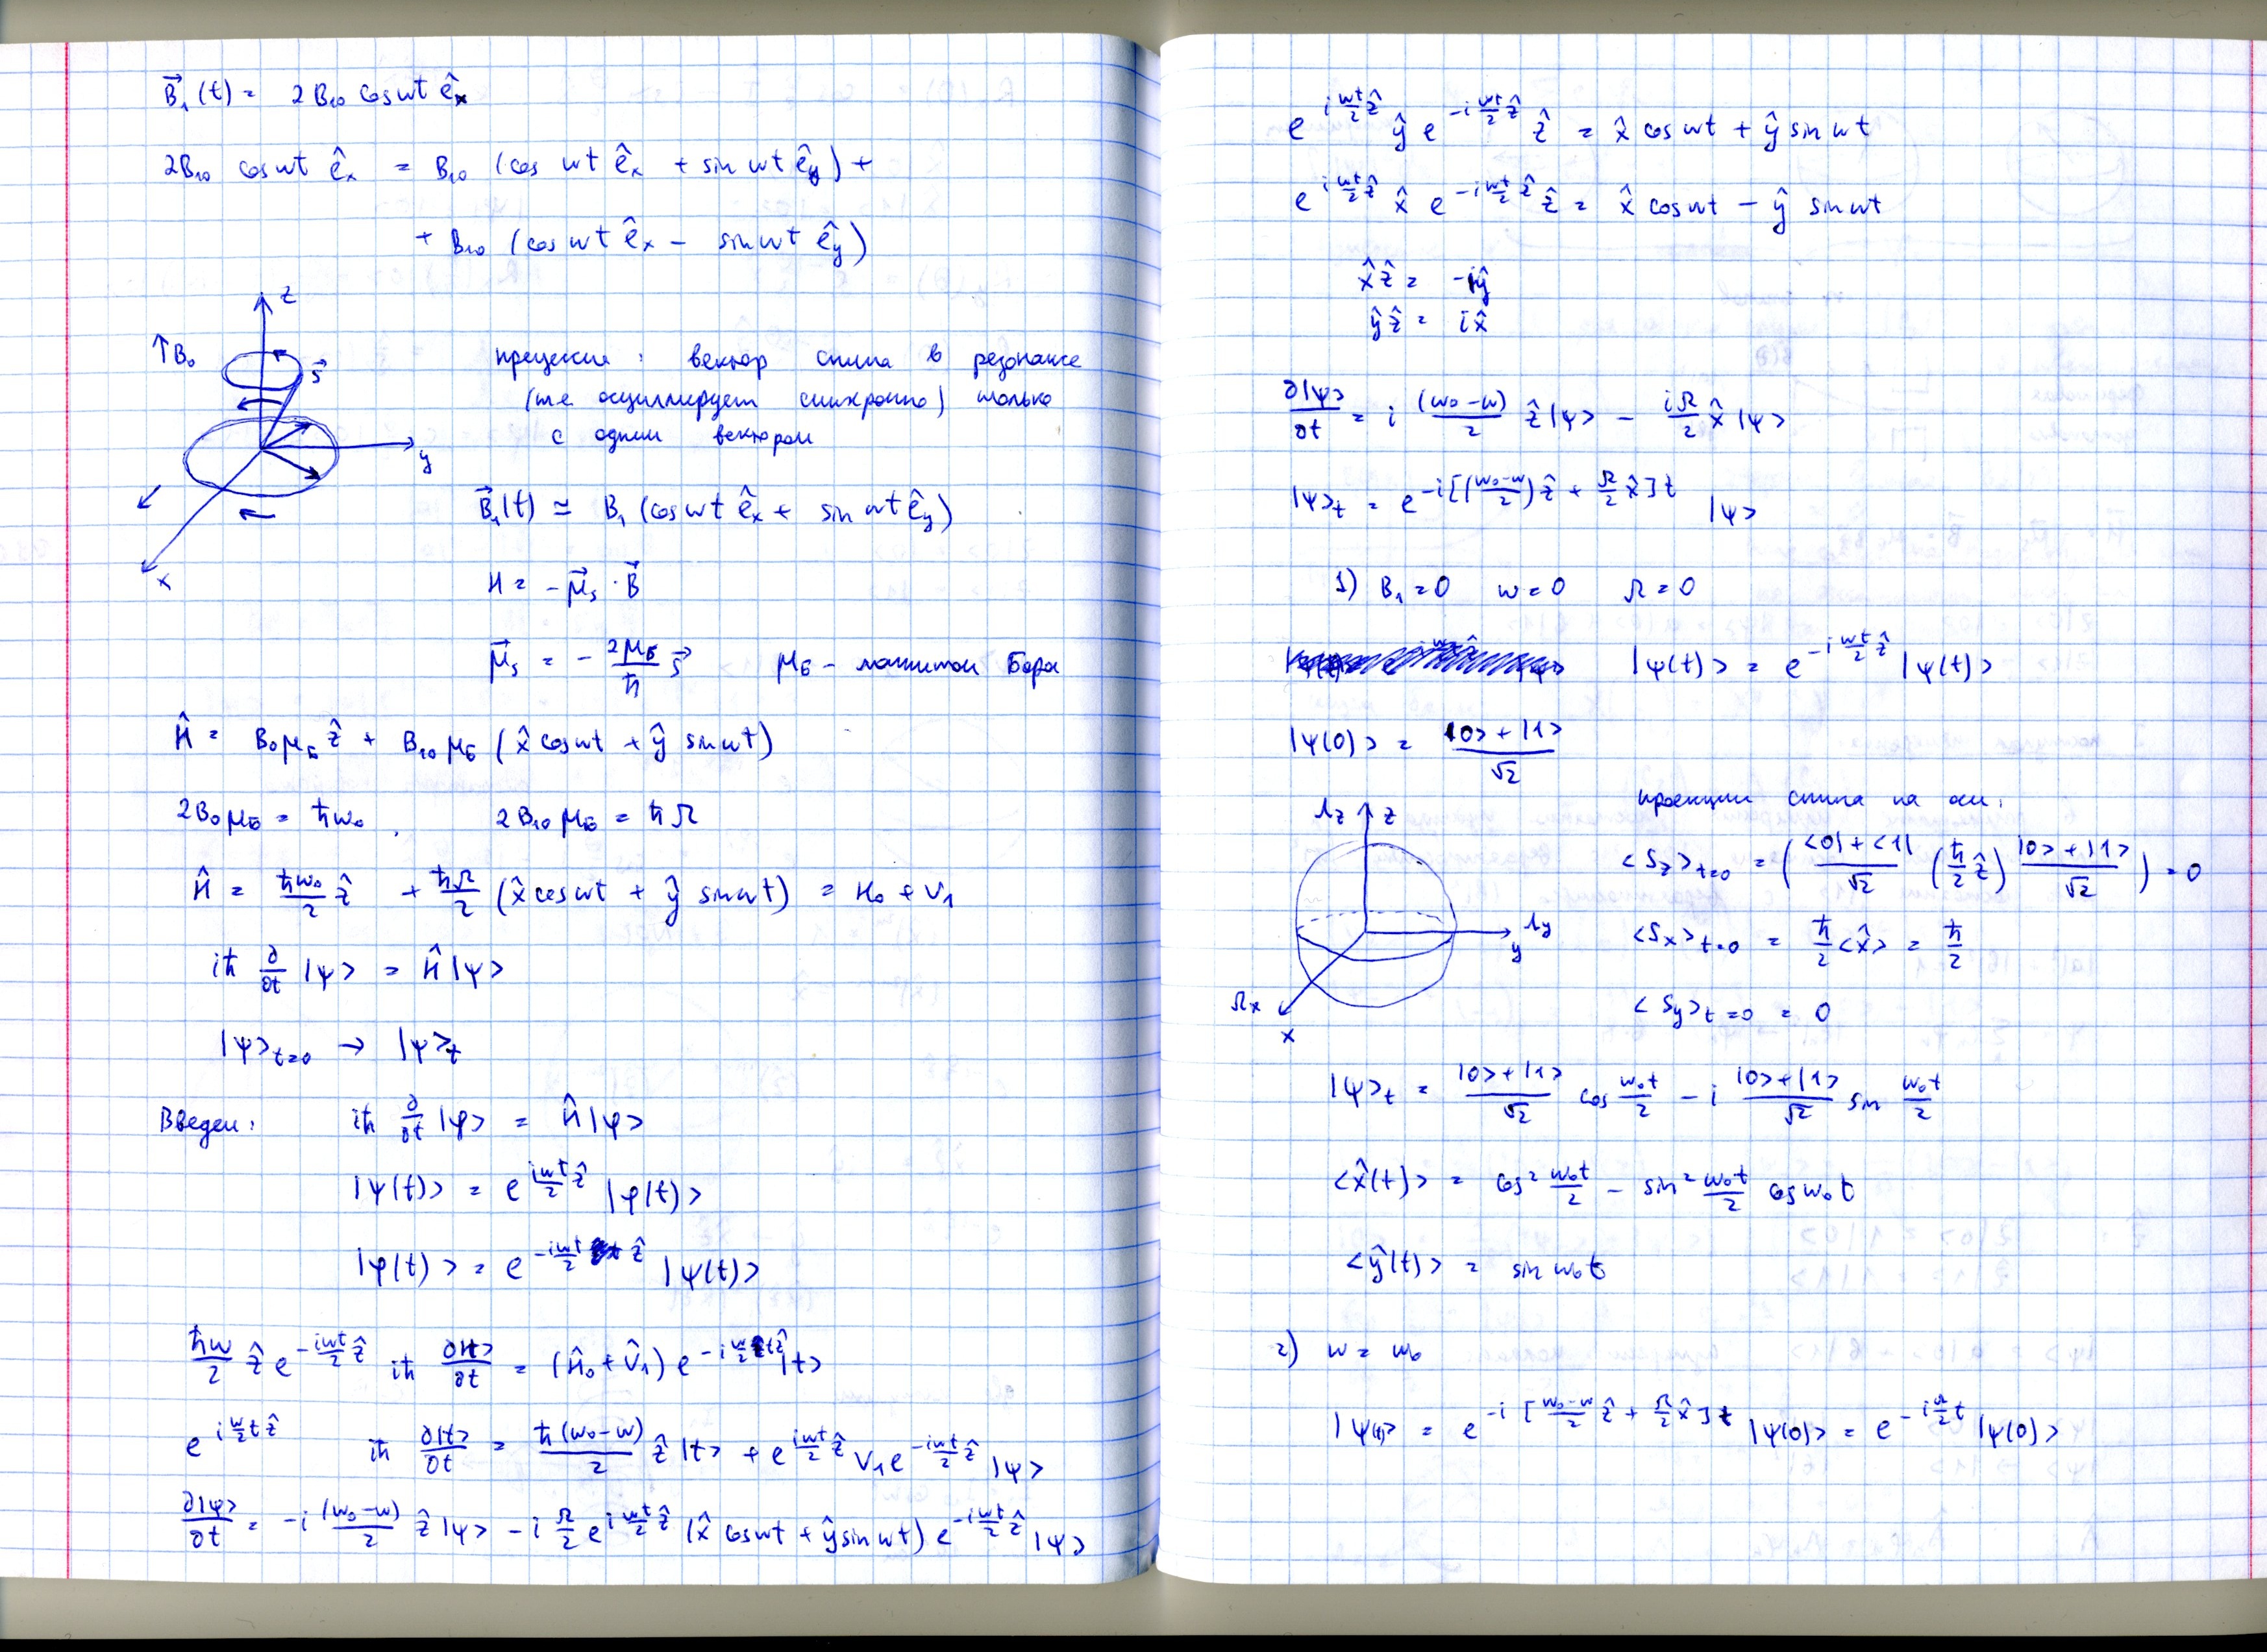 B⃗₁(t) = 2B₁₀ cos ωt ê_x
2B₁₀ cos ωt ê_x = B₁₀ (cos ωt ê_x + sin ωt ê_y) +
+ B₁₀ (cos ωt ê_x − sin ωt ê_y)
z
↑B₀
S⃗
y
x
прецессия: вектор спина в резонансе
(т.е. осциллирует синхронно) только
с одним вектором
B⃗₁(t) ≃ B₁ (cos ωt ê_x + sin ωt ê_y)
H = −μ⃗_s · B⃗
μ⃗_s = − 2μ_Б/ħ s⃗ μ_Б – магнитон Бора
Ĥ = B₀μ_Б ẑ + B₁₀μ_Б (x̂ cos ωt + ŷ sin ωt)
2B₀μ_Б = ħω₀, 2B₁₀μ_Б = ħΩ
Ĥ = ħω₀/2 ẑ + ħΩ/2 (x̂ cos ωt + ŷ sin ωt) = H₀ + V₁
iħ ∂/∂t |ψ> = Ĥ|ψ>
|ψ>_{t=0} → |ψ>_t
Введем: iħ ∂/∂t |φ> = Ĥ|φ>
|ψ(t)> = e^{iωt/2 ẑ} |φ(t)>
|φ(t)> = e^{−iωt/2 ẑ} |ψ(t)>
ħω/2 ẑ e^{−iωt/2 ẑ} iħ ∂|t>/∂t = (Ĥ₀ + V̂₁) e^{−i ω/2 t ẑ} |t>
e^{i ω/2 t ẑ} iħ ∂|t>/∂t = ħ(ω₀−ω)/2 ẑ |t> + e^{iωt/2 ẑ} V₁ e^{−iωt/2 ẑ} |ψ>
∂|ψ>/∂t = −i (ω₀−ω)/2 ẑ |ψ> − i Ω/2 e^{i ωt/2 ẑ} (x̂ cos ωt + ŷ sin ωt) e^{−i ωt/2 ẑ} |ψ>
e^{i ωt/2 ẑ} ŷ e^{−i ωt/2 ẑ} ẑ = x̂ cos ωt + ŷ sin ωt
e^{i ωt/2 ẑ} x̂ e^{−i ωt/2 ẑ} ẑ = x̂ cos ωt − ŷ sin ωt
x̂ẑ = −iŷ
ŷẑ = ix̂
∂|ψ>/∂t = i (ω₀−ω)/2 ẑ|ψ> − iΩ/2 x̂ |ψ>
|ψ>_t = e^{−i[(ω₀−ω)/2 ẑ + Ω/2 x̂] t} |ψ>
1) B₁ = 0 ω = 0 Ω = 0
|ψ(t)> = e^{−i ωt/2 ẑ} |ψ(t)>
|ψ(0)> = |0> + |1> / √2
Λz z
Λy
y
Ωx
x
проекции спина на оси:
<S_z>_{t=0} = ( <0| + <1| / √2 (ħ/2 ẑ) |0> + |1> / √2 ) = 0
<S_x>_{t=0} = ħ/2 <x̂> = ħ/2
<S_y>_{t=0} = 0
|ψ>_t = |0>+|1> / √2 cos ω₀t/2 − i |0>+|1> / √2 sin ω₀t/2
<x̂(t)> = cos² ω₀t/2 − sin² ω₀t/2 cos ω₀t
<ŷ(t)> = sin ω₀t
2) ω = ω₀
|ψ(t)> = e^{−i [ω₀−ω/2 ẑ + Ω/2 x̂] t} |ψ(0)> = e^{−i Ω/2 t} |ψ(0)>